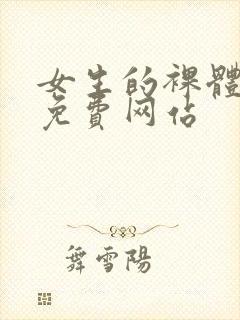 女生的裸體
免費网佔
舞雪陽